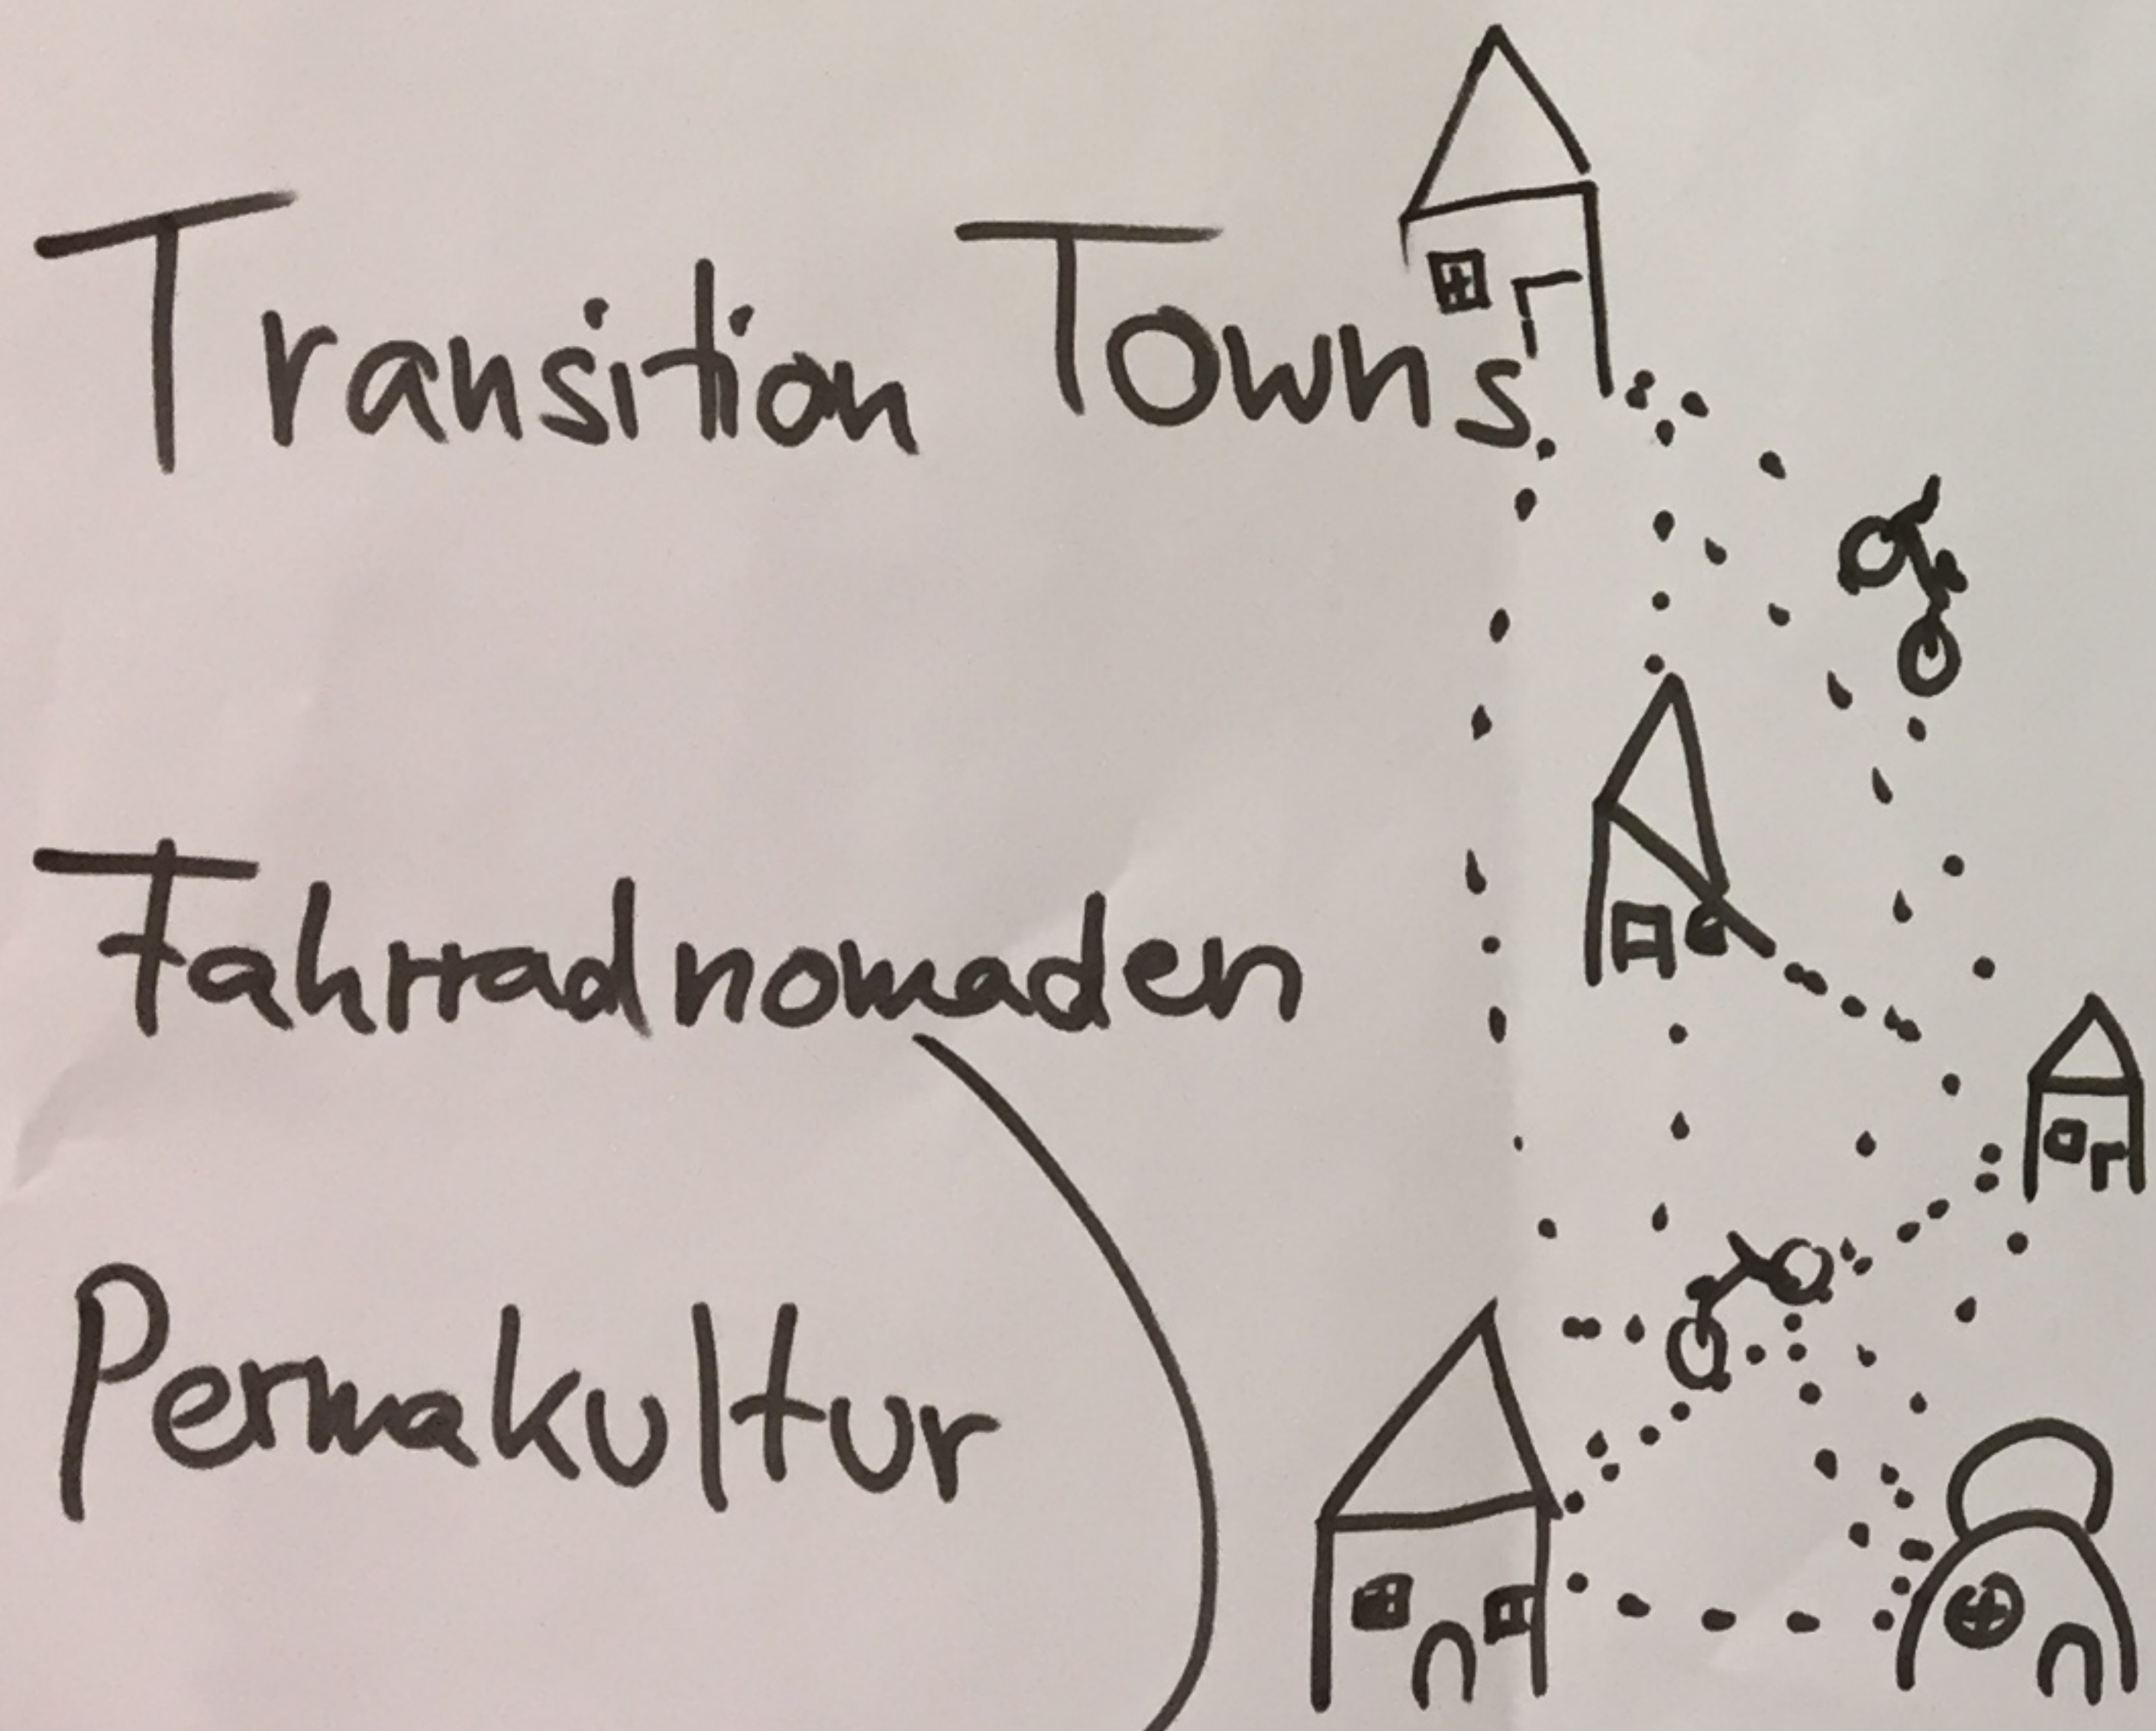 Transition Towns
Fahrradnomaden
Permakultur